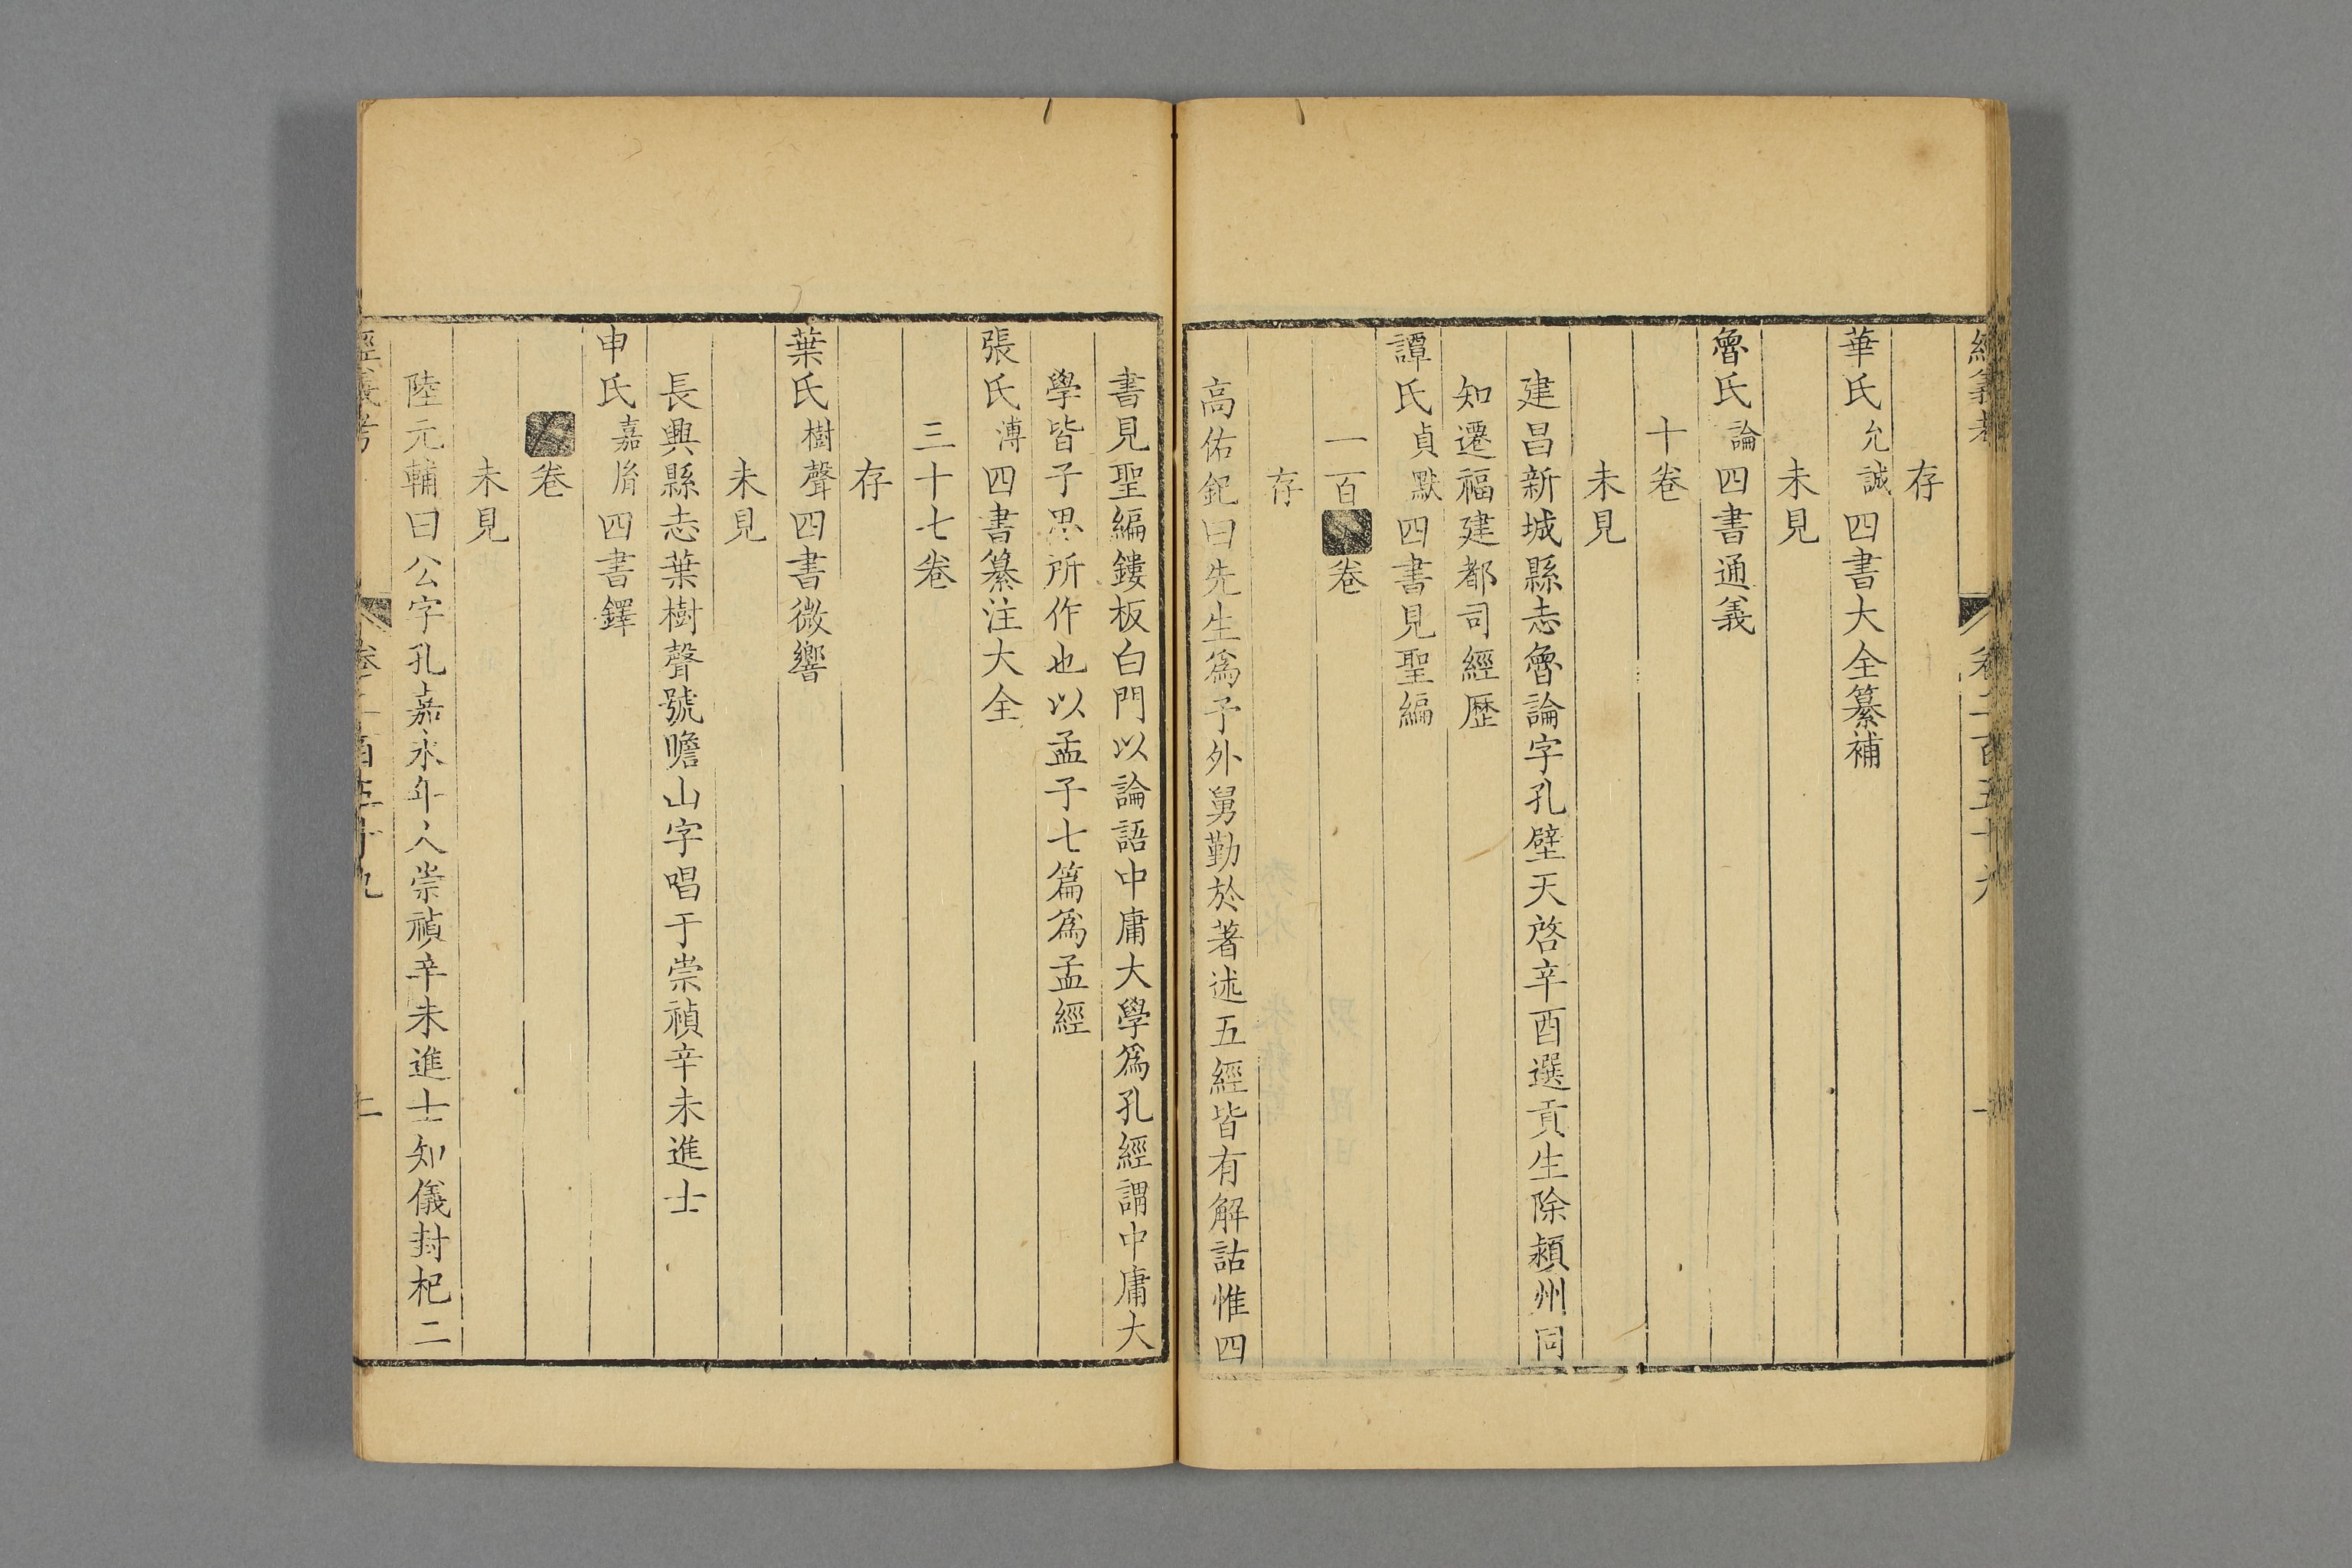 存
華氏允誠四書大全纂補
未見
魯氏論四書通義
十卷
未見
建昌新城縣志魯論字孔壁天啓辛酉選貢生除潁州同
知遷福建都司經歷
譚氏貞默四書見聖編
一百卷
存
高佑釲曰先生爲予外舅勤於著述五經皆有解詁惟四
書見聖編鏤板白門以論語中庸大學爲孔經謂中庸大
學皆子思所作也以孟子七篇爲孟經
張氏溥四書纂注大全
三十七卷
存
葉氏樹聲四書微響
未見
長興縣志葉樹聲號瞻山字唱于崇禎辛未進士
申氏嘉胤四書鐸
卷
未見
陸元輔曰公字孔嘉永年人崇禎辛未進士知儀封杞二
經義考